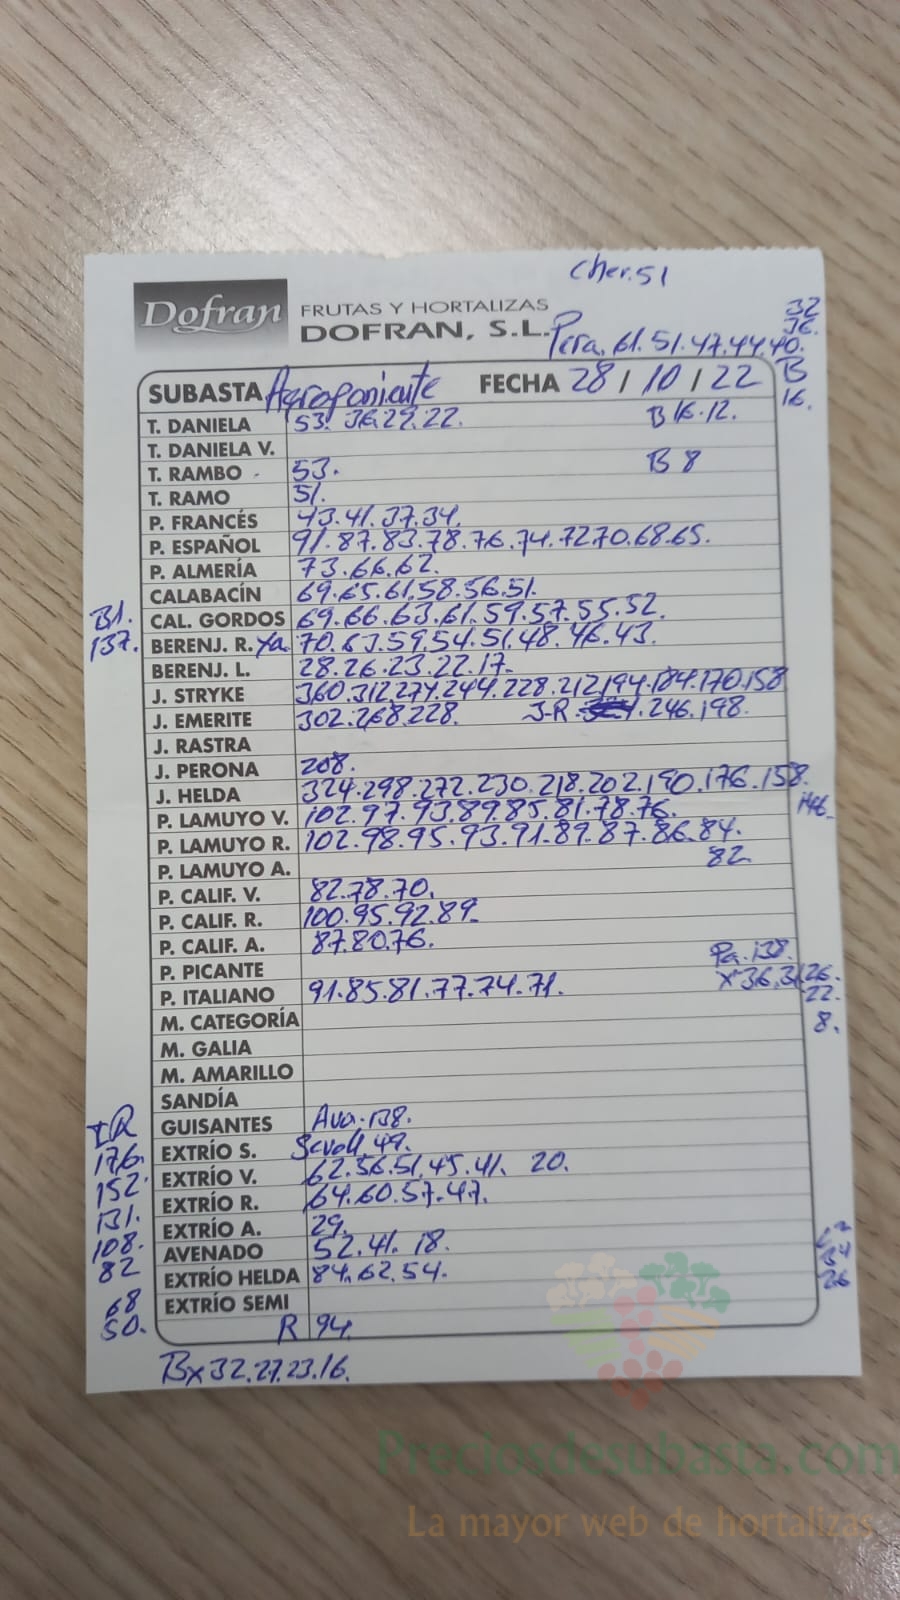 Cher.51
Dofran FRUTAS Y HORTALIZAS
DOFRAN, S.L.
Pera. 61.51.47.44.40.
32
36.
B
16.
SUBASTA Agroponiente FECHA 28/10/22
T. DANIELA 53. 36.29.22. B 16.12.
T. DANIELA V.
T. RAMBO 53. B 8
T. RAMO 51.
P. FRANCÉS 43.41.37.34.
P. ESPAÑOL 91.87.83.78.76.74.72.70.68.65.
P. ALMERÍA 73.66.62.
CALABACÍN 69.65.61.58.56.51.
CAL. GORDOS 69.66.63.61.59.57.55.52.
Bl.
137.
BERENJ. R. Ya. 70.63.59.54.51.48.46.43.
BERENJ. L. 28.26.23.22.17.
J. STRYKE 360.312.274.244.228.212.194.184.170.158
J. EMERITE 302.268.228. J-R. 246.198.
J. RASTRA
J. PERONA 208.
J. HELDA 324.298.272.230.218.202.190.176.158.
146.
P. LAMUYO V. 102.97.93.89.85.81.78.76.
P. LAMUYO R. 102.98.95.93.91.89.87.86.84.
82.
P. LAMUYO A.
P. CALIF. V. 82.78.70.
P. CALIF. R. 100.95.92.89.
P. CALIF. A. 87.80.76.
P. PICANTE Pa. 138.
P. ITALIANO 91.85.81.77.74.71. X 36.31.26.
22.
8.
M. CATEGORÍA
M. GALIA
M. AMARILLO
SANDÍA
GUISANTES Ava. 138.
EXTRÍO S. 49.
EXTRÍO V. 62.56.51.45.41. 20.
EXTRÍO R. 64.60.57.47.
EXTRÍO A. 29.
AVENADO 52.41. 18.
EXTRÍO HELDA 84.62.54.
EXTRÍO SEMI
R 94.
IR
176.
152.
131.
108.
82
68
50.
26
Bx 32.27.23.16.
Preciosdesubasta.com
La mayor web de hortalizas